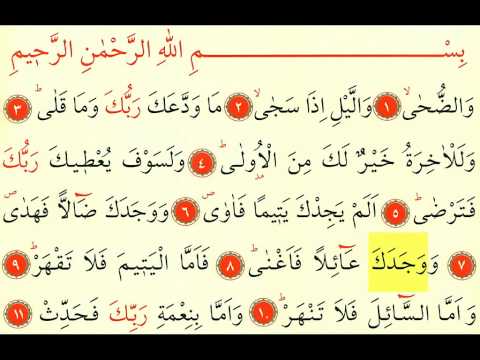 بِسْــــــــــــمِ اللهِ الرَّحْمٰنِ الرَّح۪يمِ
وَالضُّحٰىۙ ﴿١﴾ وَالَّيْلِ اِذَا سَجٰىۙ ﴿٢﴾ مَا وَدَّعَكَ رَبُّكَ وَمَا قَلٰىۜ ﴿٣﴾
وَلَلْاٰخِرَةُ خَيْرٌ لَكَ مِنَ الْاُو۫لٰىۜ ﴿٤﴾ وَلَسَوْفَ يُعْط۪يكَ رَبُّكَ
فَتَرْضٰىۜ ﴿٥﴾ اَلَمْ يَجِدْكَ يَت۪يمًا فَاٰوٰىۖ ﴿٦﴾ وَوَجَدَكَ ضَٓالًّا فَهَدٰىۖ
﴿٧﴾ وَوَجَدَكَ عَٓائِلًا فَاَغْنٰىۜ ﴿٨﴾ فَاَمَّا الْيَت۪يمَ فَلَا تَقْهَرْۜ ﴿٩﴾
وَاَمَّا السَّٓائِلَ فَلَا تَنْهَرْۜ ﴿١٠﴾ وَاَمَّا بِنِعْمَةِ رَبِّكَ فَحَدِّثْ ﴿١١﴾